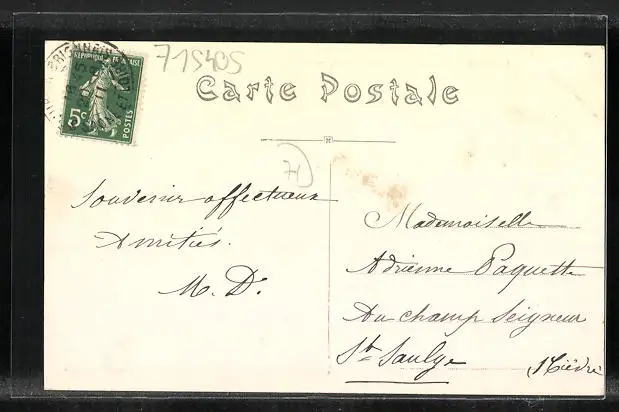 715405
RÉPUBLIQUE FRANÇAISE
5c
POSTES
Carte Postale
71
Souvenir affectueux
Amitiés.
M. D.
Mademoiselle
Adrienne Paquette
Au champ Seigneur
St Saulge (Nièvre